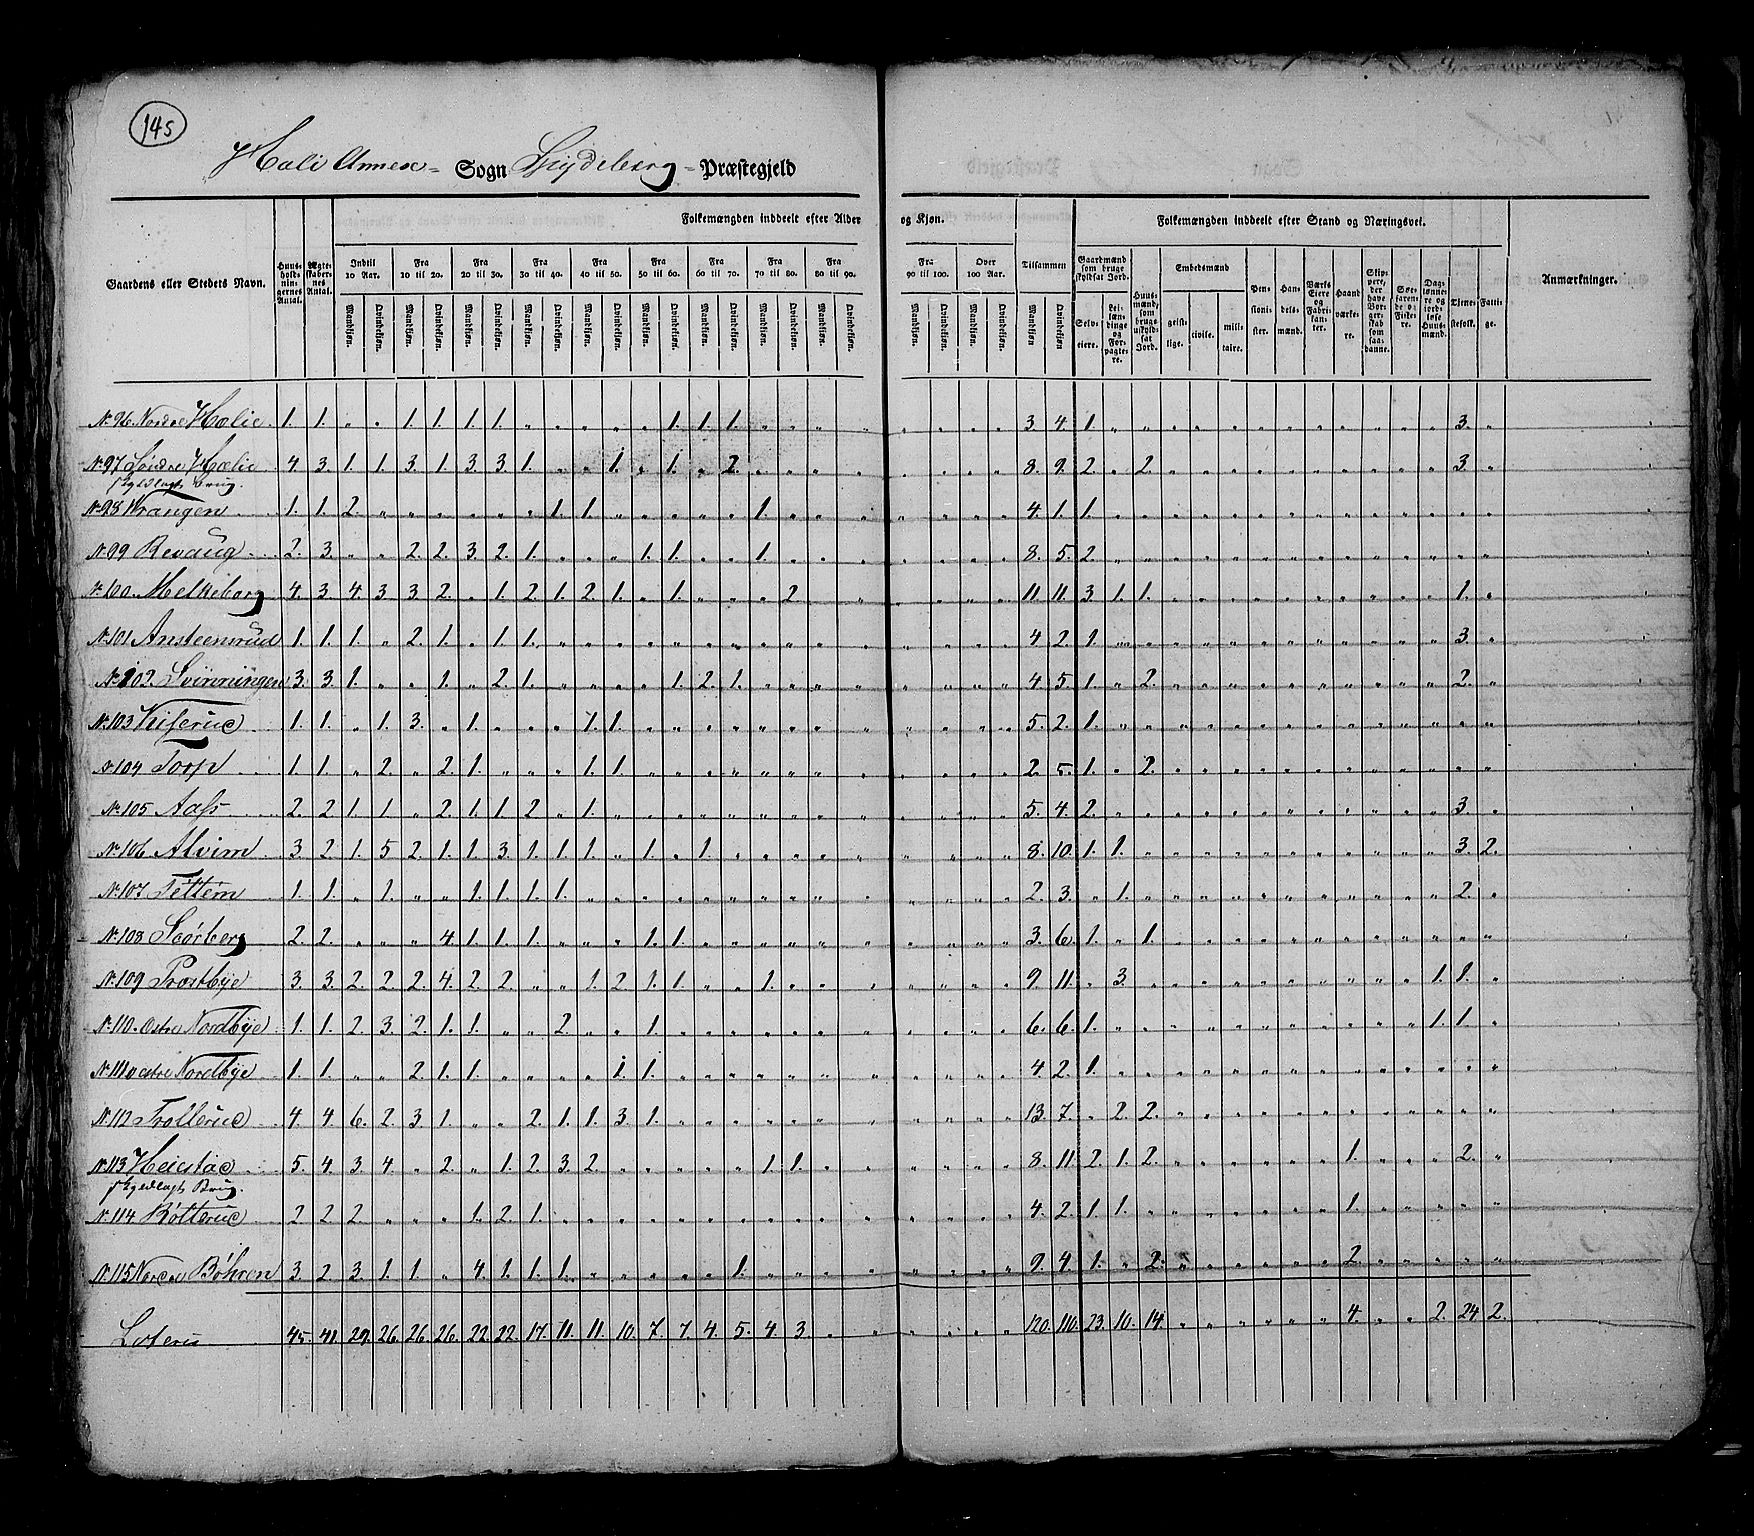 145
Hæli Annex- Sogn Spydeberg- Præstegjeld
Folkemængden inddeelt efter Alder og Kjøn.
Folkemængden inddeelt efter Stand og Næringsvei.
Gaardens eller Stedets Navn.
Huusholdningernes Antal.
Ægteskabernes Antal.
Indtil 10 Aar.
Fra 10 til 20.
Fra 20 til 30.
Fra 30 til 40.
Fra 40 til 50.
Fra 50 til 60.
Fra 60 til 70.
Fra 70 til 80.
Fra 80 til 90.
Fra 90 til 100.
Over 100 Aar.
Tilsammen
Mandkjøn. Qvindekjøn.
Gaardmænd som bruge skyldsat Jord.
Selveiere.
Leilændinge og Forpagtere.
Huusmænd, som bruge uskyldsat Jord.
Embedsmænd
geistlige.
civile.
militaire.
Pensionister.
Handelsmænd.
Værks Eiere og Fabrikanter.
Haandværkere.
Skippere, der have Borgerskab som saadanne.
Søefarende og Fiskere.
Daglønnere og jordløse Huusmænd.
Tjenestefolk.
Fattige.
Anmærkninger.
No 96 Nordre Hælie. 1. 1. „ „ 1. 1. 1. 1. „ „ „ „ „ 1. 1. 1. „ „ „ „ „ „ „ „ 3. 4. 1. „ „ „ „ „ „ „ „ „ „ „ „ 3. „
No 97 Søndre Hælie 4. 3. 1. 1. 3. 1. 3. 3. 1. „ „ 1. „ 1. „ 2. „ „ „ „ „ „ „ „ 8. 9. 2. „ 2. „ „ „ „ „ „ „ „ „ „ 3. „
skyldlagt Brug.
No 98 Wrangen 1. 1. 2. „ „ „ „ „ „ 1. 1. „ „ „ „ „ 1. „ „ „ „ „ „ „ 4. 1. 1. „ „ „ „ „ „ „ „ „ „ „ „ „ „
No 99 Revaug 2. 3. „ „ 2. 2. 3. 2. 1. „ „ „ 1. 1. „ „ 1. „ „ „ „ „ „ „ 8. 5. 2. „ „ „ „ „ „ „ „ „ „ „ „ „ „
No 100. Melkeborg 4. 3. 4. 3. 3. 2. „ 1. 2. 1. 2. 1. „ 1. „ „ „ 2. „ „ „ „ „ „ 11. 11. 3. 1. 1. „ „ „ „ „ „ „ „ „ „ 1. „
No 101 Ansteensrud 1. 1. 1. „ 2. 1. „ 1. 1. „ „ „ „ „ „ „ „ „ „ „ „ „ „ „ 4. 2. 1. „ „ „ „ „ „ „ „ „ „ „ „ 3. „
No 102. Svinnungen 3. 3. 1. „ „ 1. „ 2. 1. „ „ „ „ 1. 2. 1. „ „ „ „ „ „ „ „ 4. 5. 1. „ 2. „ „ „ „ „ „ „ „ „ „ 2. „
No 103 1. 1. „ 1. 3. „ 1. „ „ „ 1. 1. „ „ „ „ „ „ „ „ „ „ „ „ 5. 2. 1. „ „ „ „ „ „ „ „ „ „ „ „ „ „
No 104 Torp 1. 1. „ 2. „ 2. 1. „ „ „ 1. 1. „ „ „ „ „ „ „ „ „ „ „ „ 2. 5. 1. „ 2. „ „ „ „ „ „ „ „ „ „ „ „
No 105 Aass 2. 2. 1. 1. „ 2. 1. 1. 2. „ 1. „ „ „ „ „ „ „ „ „ „ „ „ „ 5. 4. 2. „ „ „ „ „ „ „ „ „ „ „ „ 3. „
No 106. Alvim 3. 2. 1. 5. 2. 1. 1. 3. 1. 1. 1. „ 1. „ 1. „ „ „ „ „ „ „ „ „ 8. 10. 1. 1. „ „ „ „ „ „ „ „ „ „ „ 3. 2.
No 107 1. 1. „ 1. „ „ 1. 1. 1. 1. „ „ „ „ „ „ „ „ „ „ „ „ „ „ 2. 3. „ 1. „ „ „ „ „ „ „ „ „ „ „ 2. „
No 108 2. 2. „ „ „ 4. 1. 1. 1. „ „ „ 1. 1. „ „ „ „ „ „ „ „ „ „ 3. 6. 1. „ 1. „ „ „ „ „ „ „ „ „ „ „ „
No 109 Prestbye 3. 3. 2. 2. 2. 4. 2. 2. „ „ 1. 2. 1. 1. „ „ 1. „ „ „ „ „ „ „ 9. 11. „ 3. „ „ „ „ „ „ „ „ „ „ 1. 1. „
No 110. Østre Nordbye 1. 1. 2. 3. 2. 1. 1. „ „ 2. „ „ 1. „ „ „ „ „ „ „ „ „ „ „ 6. 6. 1. „ „ „ „ „ „ „ „ „ „ „ 1. 1. „
No 111 Nordbye 1. 1. „ „ 2. 1. 1. „ „ „ „ 1. 1. „ „ „ „ „ „ „ „ „ „ „ 4. 2. 1. „ „ „ „ „ „ „ „ „ „ „ „ „ „
No 112 Trollerud 4. 4. 6. 2. 3. 1. „ „ 2. 1. 1. 3. 1. „ „ „ „ „ „ „ „ „ „ „ 13. 7. „ 2. 2. „ „ „ „ „ „ „ „ „ „ „ „
No 113 Heiestad 5. 4. 3. 4. „ 2. „ 1. 2. 3. 2. „ „ „ „ „ 1. 1. „ „ „ „ „ „ 8. 11. 2. 1. 2. „ „ „ „ „ „ 1. „ „ „ 2. „
skyldlagt Brug.
No 114 Bølterud 2. 2. 2. „ „ „ 1. 2. 1. „ „ „ „ „ „ „ „ „ „ „ „ „ „ „ 4. 2. 1. 1. „ „ „ „ „ „ „ 1. „ „ „ „ „
No 115 Nordre Bøhren 3. 2. 3. 1. 1. „ 4. 1. 1. 1. „ „ „ „ „ 1. „ „ „ „ „ „ „ „ 9. 4. 1. „ 2. „ „ „ „ „ „ 2. „ „ „ „ „
Lateris 45. 41. 29. 26. 26. 26. 22. 22. 17. 11. 11. 10. 7. 7. 4. 5. 4. 3. „ „ „ „ „ „ 120. 110. 23. 10. 14. „ „ „ „ „ „ 4. „ „ 2. 24. 2.